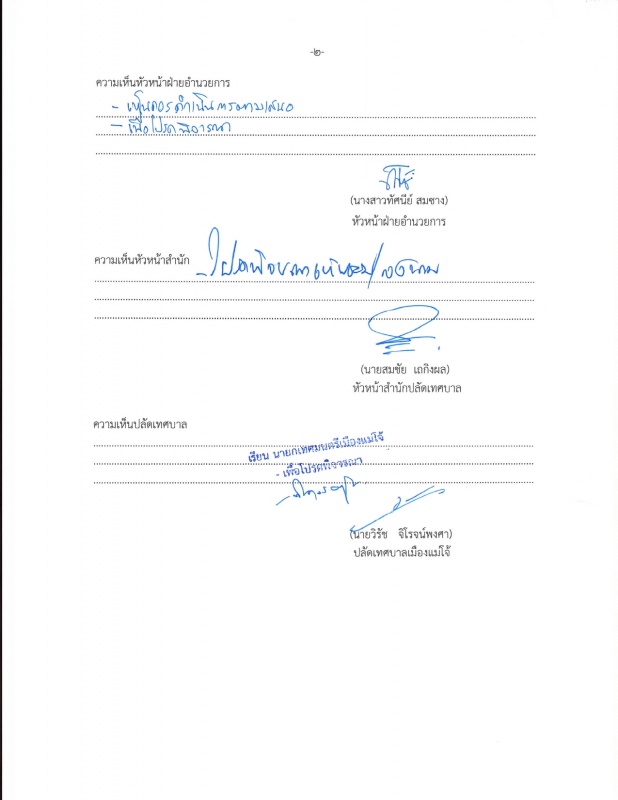 -๒-
ความเห็นหัวหน้าฝ่ายอำนวยการ
- เห็นควรดำเนินการตามเสนอ
- เพื่อโปรดพิจารณา
(นางสาวทัศนีย์ สมซาง)
หัวหน้าฝ่ายอำนวยการ
ความเห็นหัวหน้าสำนัก
- โปรดพิจารณา
(นายสมชัย เถกิงผล)
หัวหน้าสำนักปลัดเทศบาล
ความเห็นปลัดเทศบาล
เรียน นายกเทศมนตรีเมืองแม่โจ้
- เพื่อโปรดพิจารณา
(นายวิรัช จิโรจน์พงศา)
ปลัดเทศบาลเมืองแม่โจ้